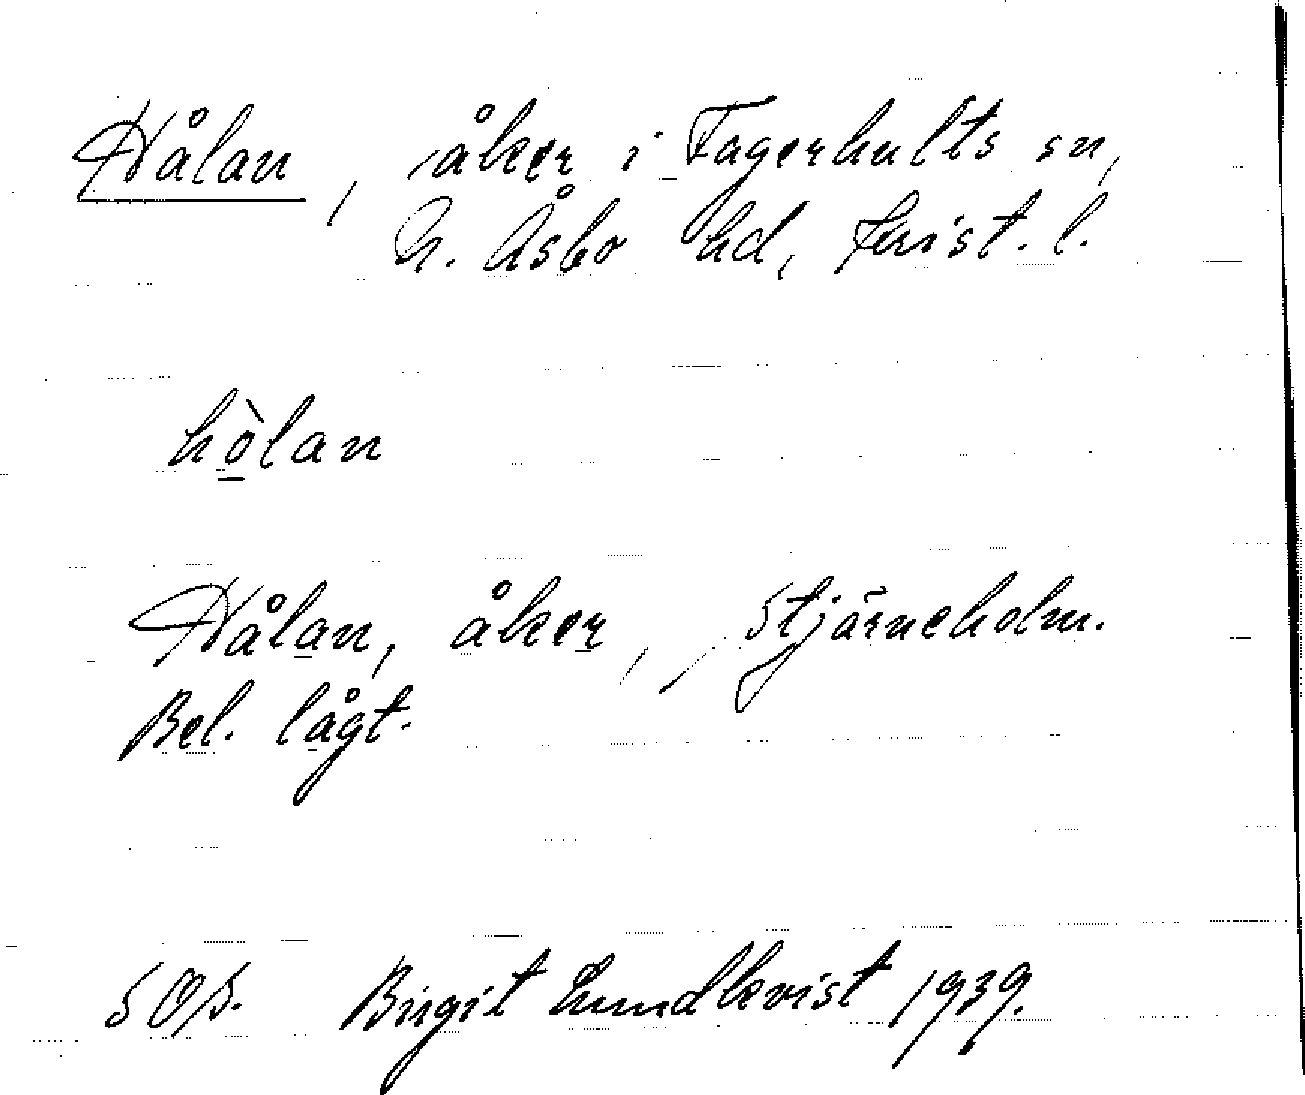 Hålan, åker i Fagerhults sn,
N. Åsbo hd, Krist. l.
hò̱lan
Hålan, åker, Stjärneholm.
Bel. lågt.
Birgit Lundkvist 1939.